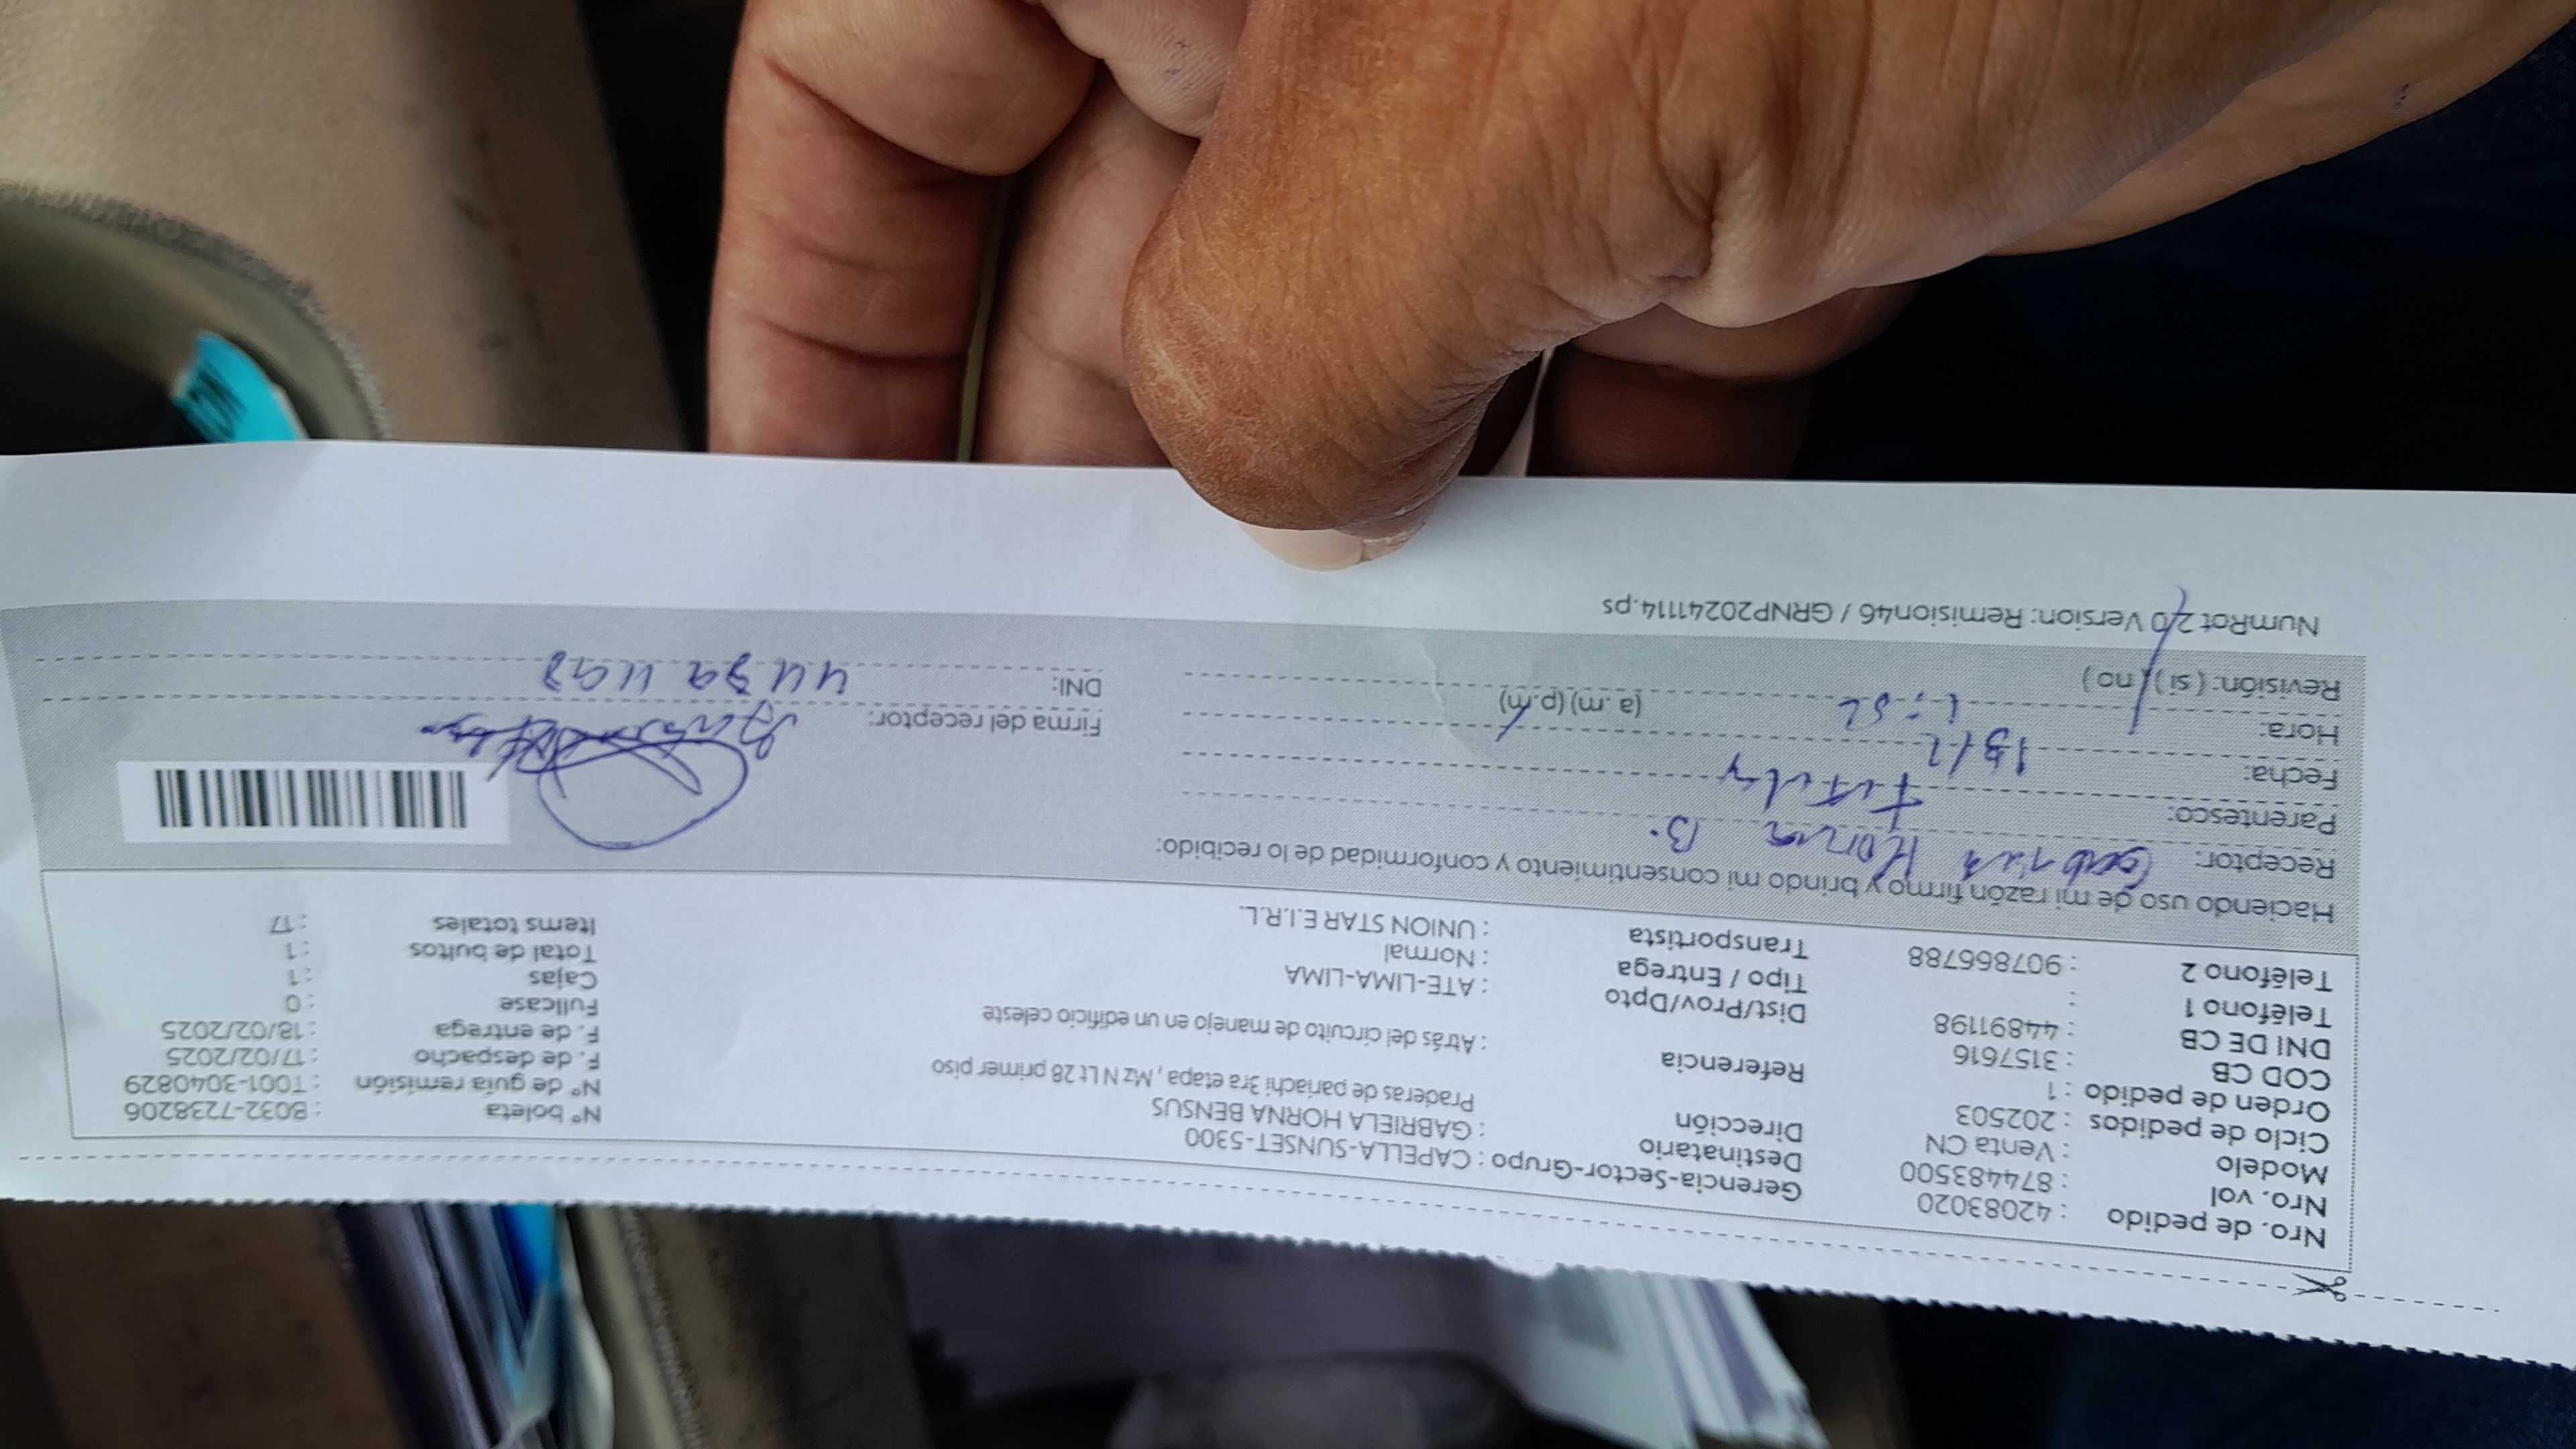 Nro. de pedido : 42083020
Nro. vol : 874483500
Modelo : Venta CN
Ciclo de pedidos : 202503
Orden de pedido : 1
COD CB : 3157616
DNI DE CB : 44891198
Teléfono 1 :
Teléfono 2 : 907866788
Gerencia-Sector-Grupo : CAPELLA-SUNSET-5300
Destinatario : GABRIELA HORNA BENSUS
Dirección Praderas de pariachi 3ra etapa , Mz N Lt 28 primer piso
Referencia : Atrás del circuito de manejo en un edificio celeste
Dist/Prov/Dpto : ATE-LIMA-LIMA
Tipo / Entrega : Normal
Transportista : UNION STAR E.I.R.L.
N° boleta : B032-7238206
N° de guía remisión : T001-3040829
F. de despacho : 17/02/2025
F. de entrega : 18/02/2025
Fullcase : 0
Cajas : 1
Total de bultos : 1
Items totales : 17
Haciendo uso de mi razón firmo y brindo mi consentimiento y conformidad de lo recibido:
Receptor: Horna B.
Parentesco: Titular
Fecha:
Hora: (a.m) (p.m)
Revisión: ( si ) ( no )
Firma del receptor:
DNI:
NumRot 2.0 Version: Remision46 / GRNP20241114.ps